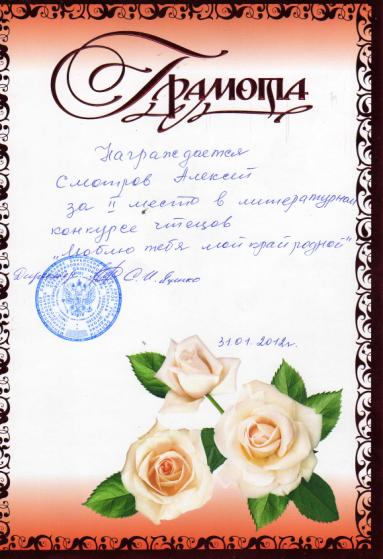 Грамота
Награждается
Смотров Алексей
за II место в литературном
конкурсе чтецов
"Люблю тебя мой край родной"
Директор С.И.
31.01.2012г.